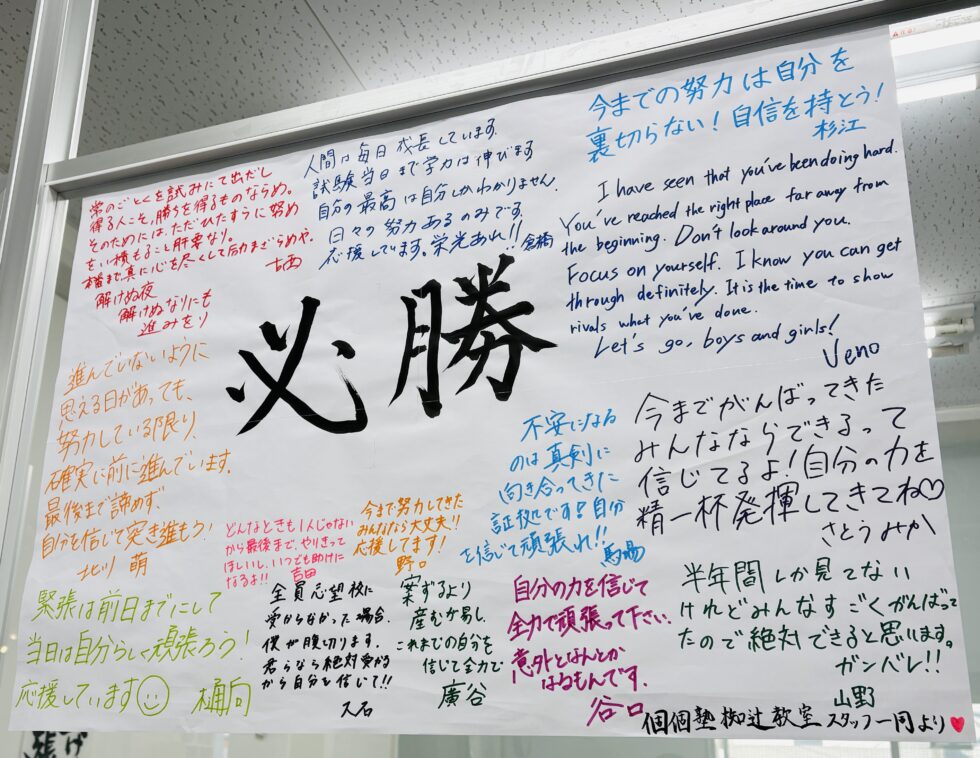 必勝
常のごとくを試みにて出だし
得る人こそ、勝ちを得るものならめ。
そのためには、ただひたすらに努め
をい積もること肝要なり。
本番まで真に心を尽くして励まざらめや.
古西
解けぬ夜
解けぬなりにも
進みをり
人間は毎日成長しています.
試験当日まで学力は伸びます
自分の最高は自分しかわかりません.
日々の努力あるのみです.
応援しています。栄光あれ!!
倉橋
今までの努力は自分を
裏切らない!自信を持とう!
杉江
I have seen that you've been doing hard.
You've reached the right place far away from
the beginning. Don't look around you.
Focus on yourself. I know you can get
through definitely. It is the time to show
rivals what you've done.
Let's go, boys and girls!
Ueno
進んでいないように
思える日があっても、
努力している限り、
確実に前に進んでいます.
最後まで諦めず、
自分を信じて突き進もう!
北川 萌
どんなときも1人じゃない
から最後まで、やりきって
ほしいし、いつでも助けに
なるよ!! 吉田
今まで努力してきた
みんななら大丈夫!!
応援してます!
野口
不安になる
のは真剣に
向き合ってきた
証拠です!自分
を信じて頑張れ!!
馬場
今までがんばってきた
みんなならできるって
信じてるよ!自分の力を
精一杯発揮してきてね♡
さとうみか
緊張は前日までにして
当日は自分らしく頑張ろう!
応援しています☺
樋向
全員志望校に
受からなかった場合、
僕が腹切ります.
君らなら絶対受かる
から自分を信じて!!
久石
案ずるより
産むが易し.
これまでの自分を
信じて全力で
廣谷
自分の力を信じて
全力で頑張って下さい.
意外となんとか
なるもんです.
谷口
半年間しか見てない
けれどみんなすごくがんばって
たので絶対できると思います。
ガンバレ!!
山野
個個塾椥辻教室スタッフ一同より♥